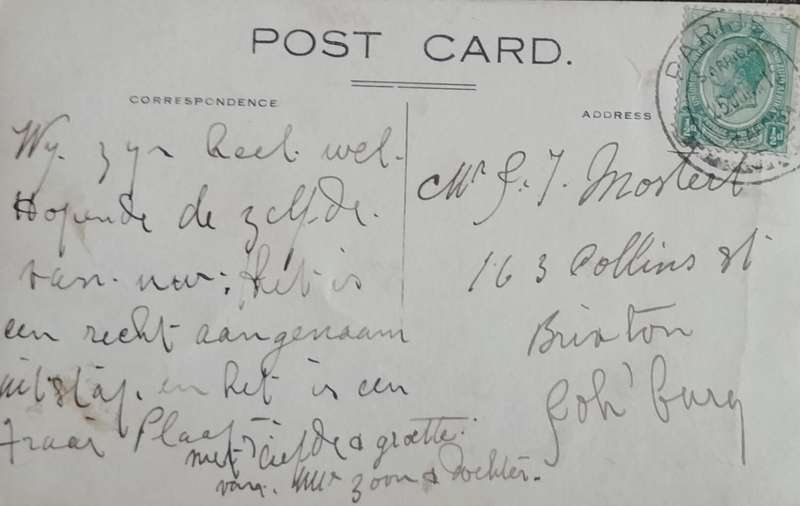 POST CARD.
CORRESPONDENCE
Wy zyn heel wel.
Hopende de zelfde.
van uw: Het is
een recht aangenaam
uitstap. en het is een
fraai Plaats
met liefde & groette.
van. uw zoon & dochter.
ADDRESS
PARIJS
Mr J. J. Mostert
163 Collins st
Brixton
Joh'burg